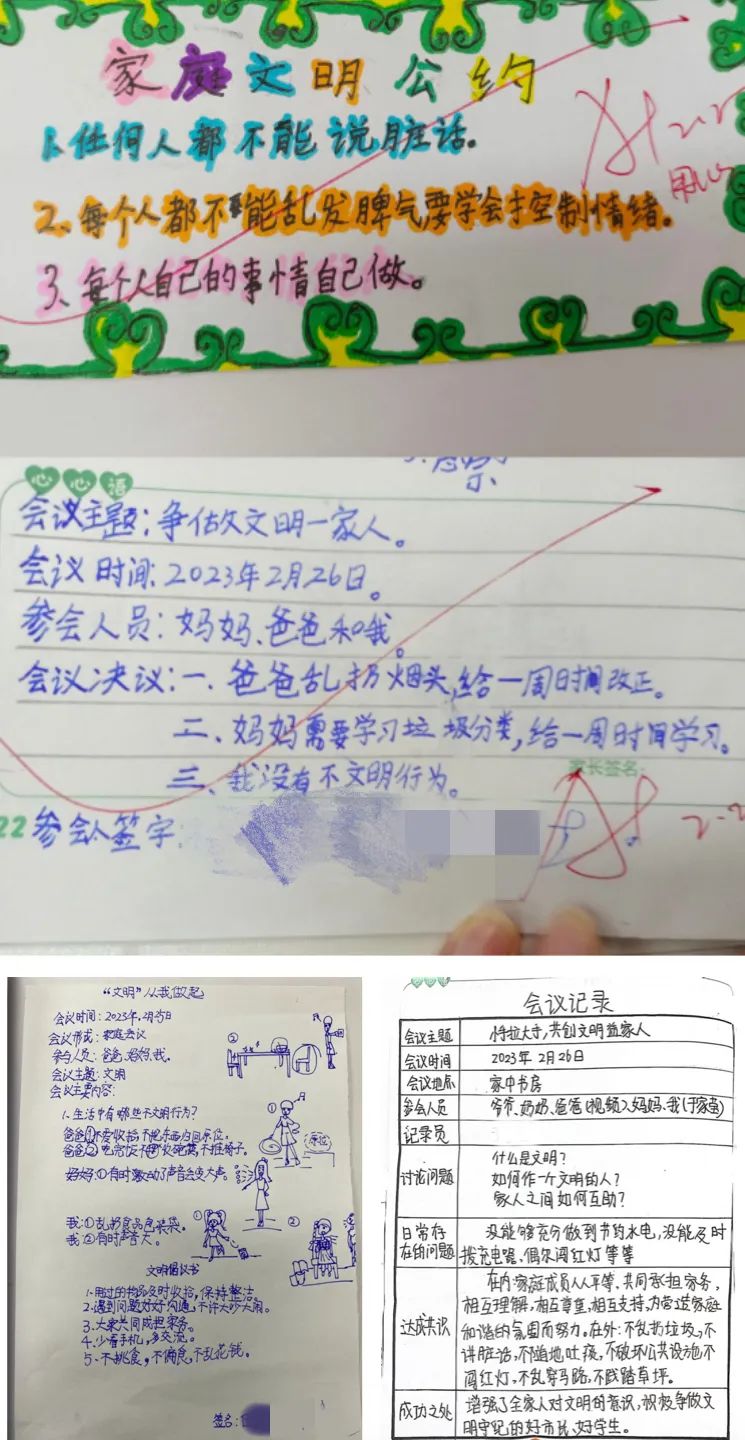 家庭文明公约
1、任何人都不能说脏话。
2、每个人都不能乱发脾气要学会控制情绪。
3、每个人自己的事情自己做。
用心
心心语
会议主题：争做文明一家人。
会议时间：2023年2月26日。
参会人员：妈妈、爸爸和我。
会议决议：一、爸爸乱扔烟头，给一周时间改正。
二、妈妈需要学习垃圾分类，给一周时间学习。
三、我没有不文明行为。
家长签名：
22参会人签字：
“文明”从我做起
会议时间：2023年2月25日
会议形式：家庭会议
参与人员：爸爸、妈妈、我。
会议主题：文明
会议主要内容：
1、生活中有哪些不文明行为？
爸爸：①不爱收拾，不把东西归回原位。
爸爸：②吃完饭不收碗筷，不推椅子。
妈妈：①有时激动了声音会变大声。
我：①乱扔食品包装袋。
我：②有时声音大。
文明倡议书
1、用过的物品及时收拾，保持整洁。
2、遇到问题好好沟通，不许大吵大闹。
3、大家共同承担家务。
4、少看手机，多交流。
5、不挑食，不偏食，不乱花钱。
签名：
会议记录
会议主题 恃拉大寸，共创文明益家人
会议时间 2023年2月26日
会议地点 家中书房
参会人员 爷爷、奶奶、爸爸(视频)、妈妈、我(于家萱)
记录员
讨论问题 什么是文明？
如何作一个文明的人？
家人之间如何互助？
日常存在的问题 没能够充分做到节约水电，没能及时
拔充电器，偶尔闯红灯等等
达成共识 在内：家庭成员人人平等、共同承担家务，
相互理解，相互尊重，相互支持，为营造家庭
和谐的氛围而努力。在外：不乱扔垃圾，不
讲脏话，不随地吐痰，不破坏公共设施不
闯红灯，不乱穿马路，不践踏草坪。
成功之处 增强了全家人对文明的意识，积极争做文
明守纪的好市民、好学生。